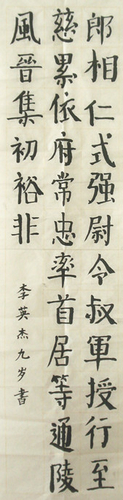 郎相仁式强尉令叔軍授行至
慈累依府常忠率首居等通陵
風晉集初裕非
李英杰九岁書